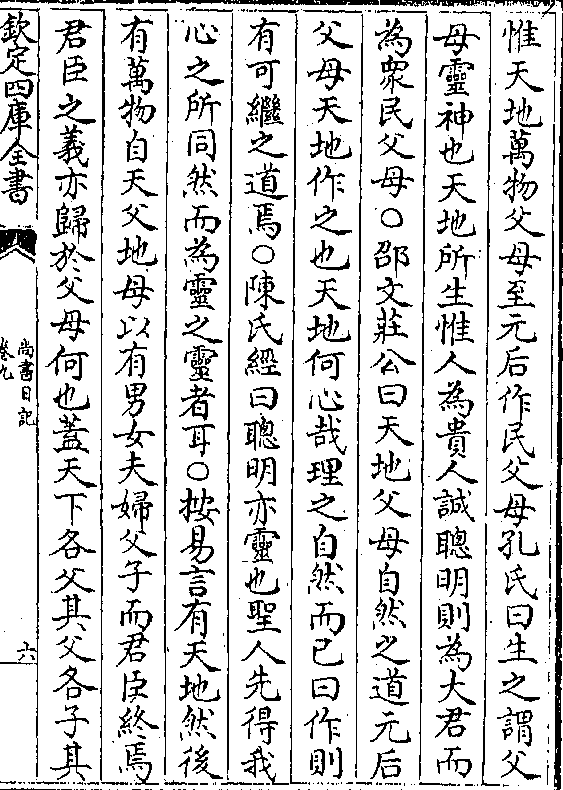 惟天地萬物父母至元后作民父母孔氏曰生之謂父
母靈神也天地所生惟人為貴人誠聰明則為大君而
為衆民父母○邵文莊公曰天地父母自然之道元后
父母天地作之也天地何心哉理之自然而已曰作則
有可繼之道焉○陳氏經曰聰明亦靈也聖人先得我
心之所同然而為靈之靈者耳○按易言有天地然後
有萬物自天父地母以有男女夫婦父子而君臣終焉
君臣之義亦歸於父母何也蓋天下各父其父各子其
欽定四庫全書
尚書日記
卷九
六